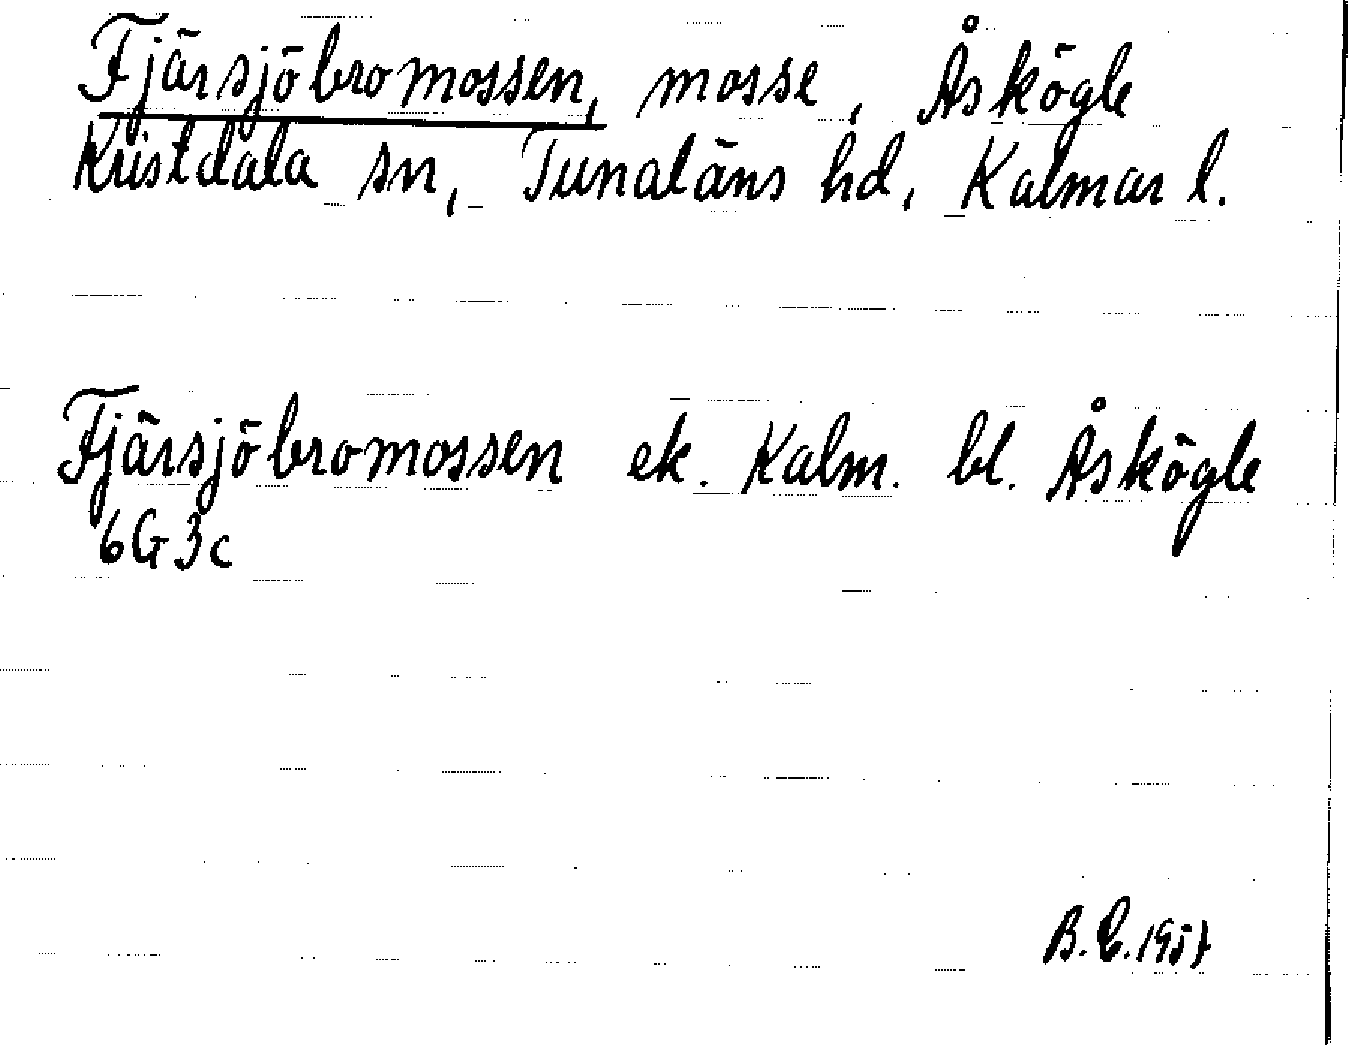 Fjärsjöbromossen, mosse, Åskögle
Kristdala sn, Tunaläns hd, Kalmar l.
Fjärsjöbromossen ek. Kalm. bl. Åskögle
6G3c
B.E.1957